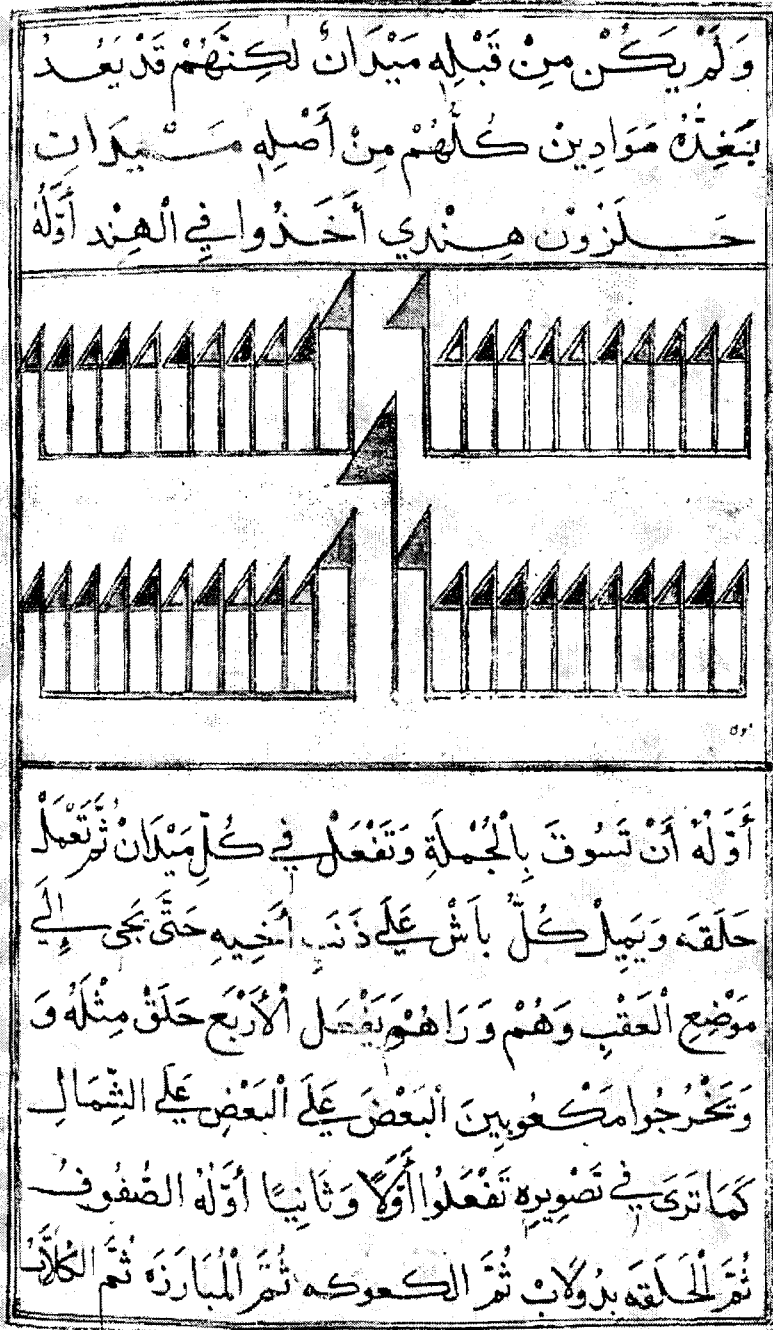 وَلَمْ يَكُنْ مِنْ قَبْلِهِ مَيْدَانٌ لَكِنَّهُمْ قَدْ يَعُدُ
مَوَادِينْ كُلُّهُمْ مِنْ أَصْلِهِ
حَلَزُوْن هِنْدِي أَخَذُوا فِي الْهِنْد أَوَّلُهُ
أَوَّلُهُ أَنْ تَسُوقَ بِالْجُمْلَةِ وَتَفْعَلْ فِي كُلِّ مَيْدَانْ ثُمَّ تَعْمَلْ
حَلَقَه وَيَمِيلْ كُلُّ بَاشْ عَلَى ذَنَبِ أَخِيهِ حَتَّى يَجِي إِلَى
مَوْضِعِ الْعَقْبِ وَهُمْ وَرَاهُمْ يَفْعَل الْأَرْبَع حَلَقْ مِثْلَهُ وَ
وَتَخْرُجُوا مَكْعُوبِينَ الْبَعْضَ عَلَى الْبَعْضِ عَلَى الشِّمَالِ
كَمَا تَرَى فِي تَصْوِيرِهِ تَفْعَلُوا أَوَّلًا وَثَانِيًا أَوَّلُهُ الصُّفُوفُ
ثُمَّ الْحَلَقَه بِدُولَابْ ثُمَّ الكعوكه ثُمَّ الْمُبَارَزَه ثُمَّ